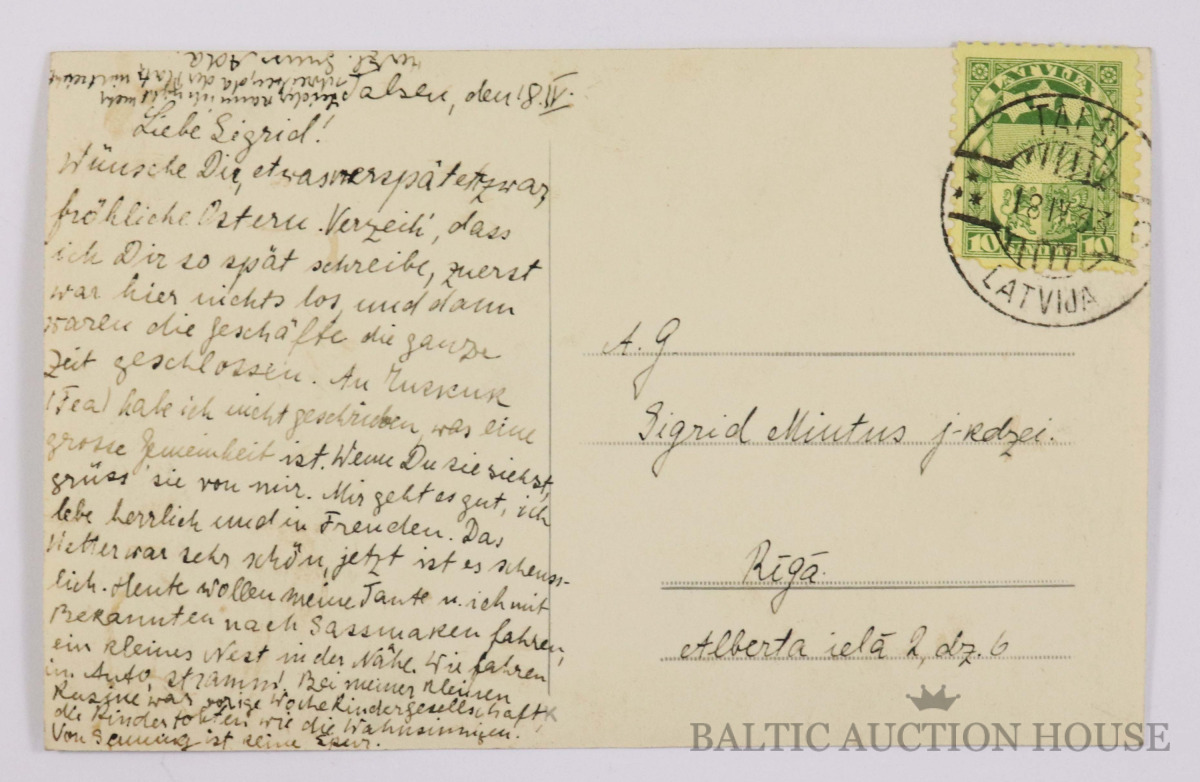 Talsen, den 18.IV.
Liebe Sigrid!
Wünsche Dir, etwas verspätet zwar,
fröhliche Ostern. Verzeih', dass
ich Dir so spät schreibe, zuerst
war hier nichts los, und dann
waren die Geschäfte die ganze
Zeit geschlossen. An
(Tea) habe ich nicht geschrieben, was eine
grosse Gemeinheit ist. Wenn Du sie siehst,
grüss' sie von mir. Mir geht es gut, ich
lebe herrlich und in Freuden. Das
Wetter war sehr schön, jetzt ist es scheuss-
lich. Heute wollen meine Tante u. ich mit
Bekannten nach Sassmaken fahren,
ein kleines Nest in der Nähe. Wir fahren
im Auto, stramm! Bei meiner kleinen
Kusine war vorige Woche Kindergesellschaft,
die Kinder tobten wie die Wahnsinnigen.
Von ist keine Spur.
Leider kann ich nicht mehr
schreiben, da der Platz
Herzl. Gruss
LATVIJA
10 10
TALSI
18 IV 33
LATVIJA
A. G.
Sigrid Mintus j-kdzei.
Rīgā.
Alberta ielā 2, dz. 6
BALTIC AUCTION HOUSE